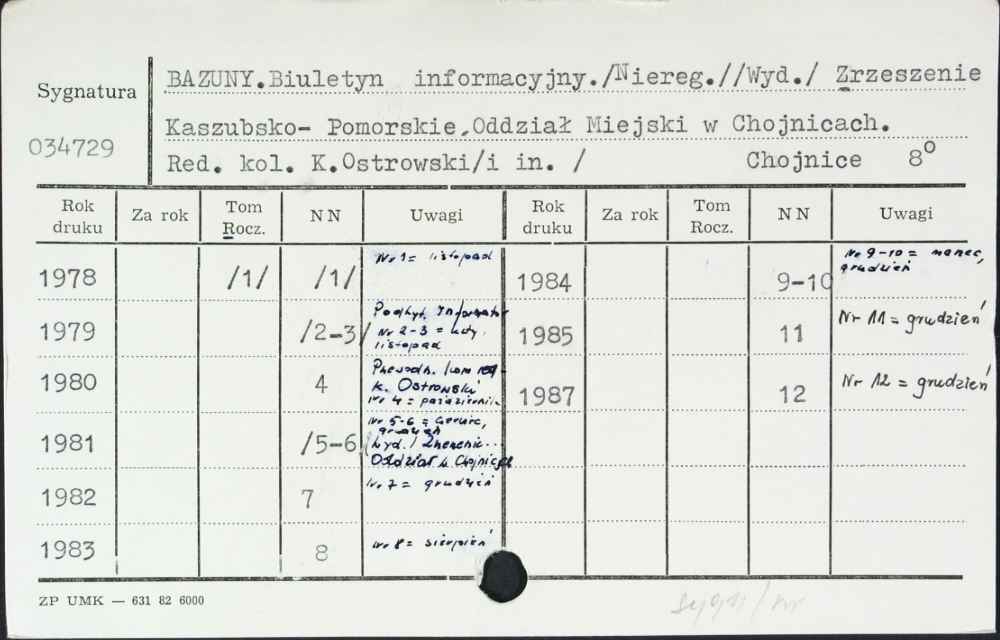 Sygnatura
034729
BAZUNY.Biuletyn informacyjny./Niereg.//Wyd./ Zrzeszenie
Kaszubsko- Pomorskie,Oddział Miejski w Chojnicach.
Red. kol. K.Ostrowski/i in. / Chojnice 8°
Rok druku Za rok Tom Rocz. NN Uwagi Rok druku Za rok Tom Rocz. NN Uwagi
1978 /1/ /1/ Nr 1 = listopad
1979 /2-3/ Podtyt. Informator
Nr 2-3 = luty,
listopad
1980 4 Przewodn. kom red
K. Ostrowski
Nr 4 = październik
1981 /5-6/ Nr 5-6 = czerwiec,
grudzień
/Wyd./ Zrzeszenie...
Oddział w Chojnicach
1982 7 Nr 7 = grudzień
1983 8 Nr 8 = sierpień
1984 9-10 Nr 9-10 = marzec,
grudzień
1985 11 Nr 11 = grudzień
1987 12 Nr 12 = grudzień
ZP UMK — 631 82 6000